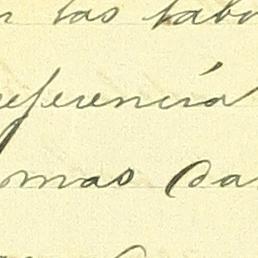 las tabo
eferencia
omas da